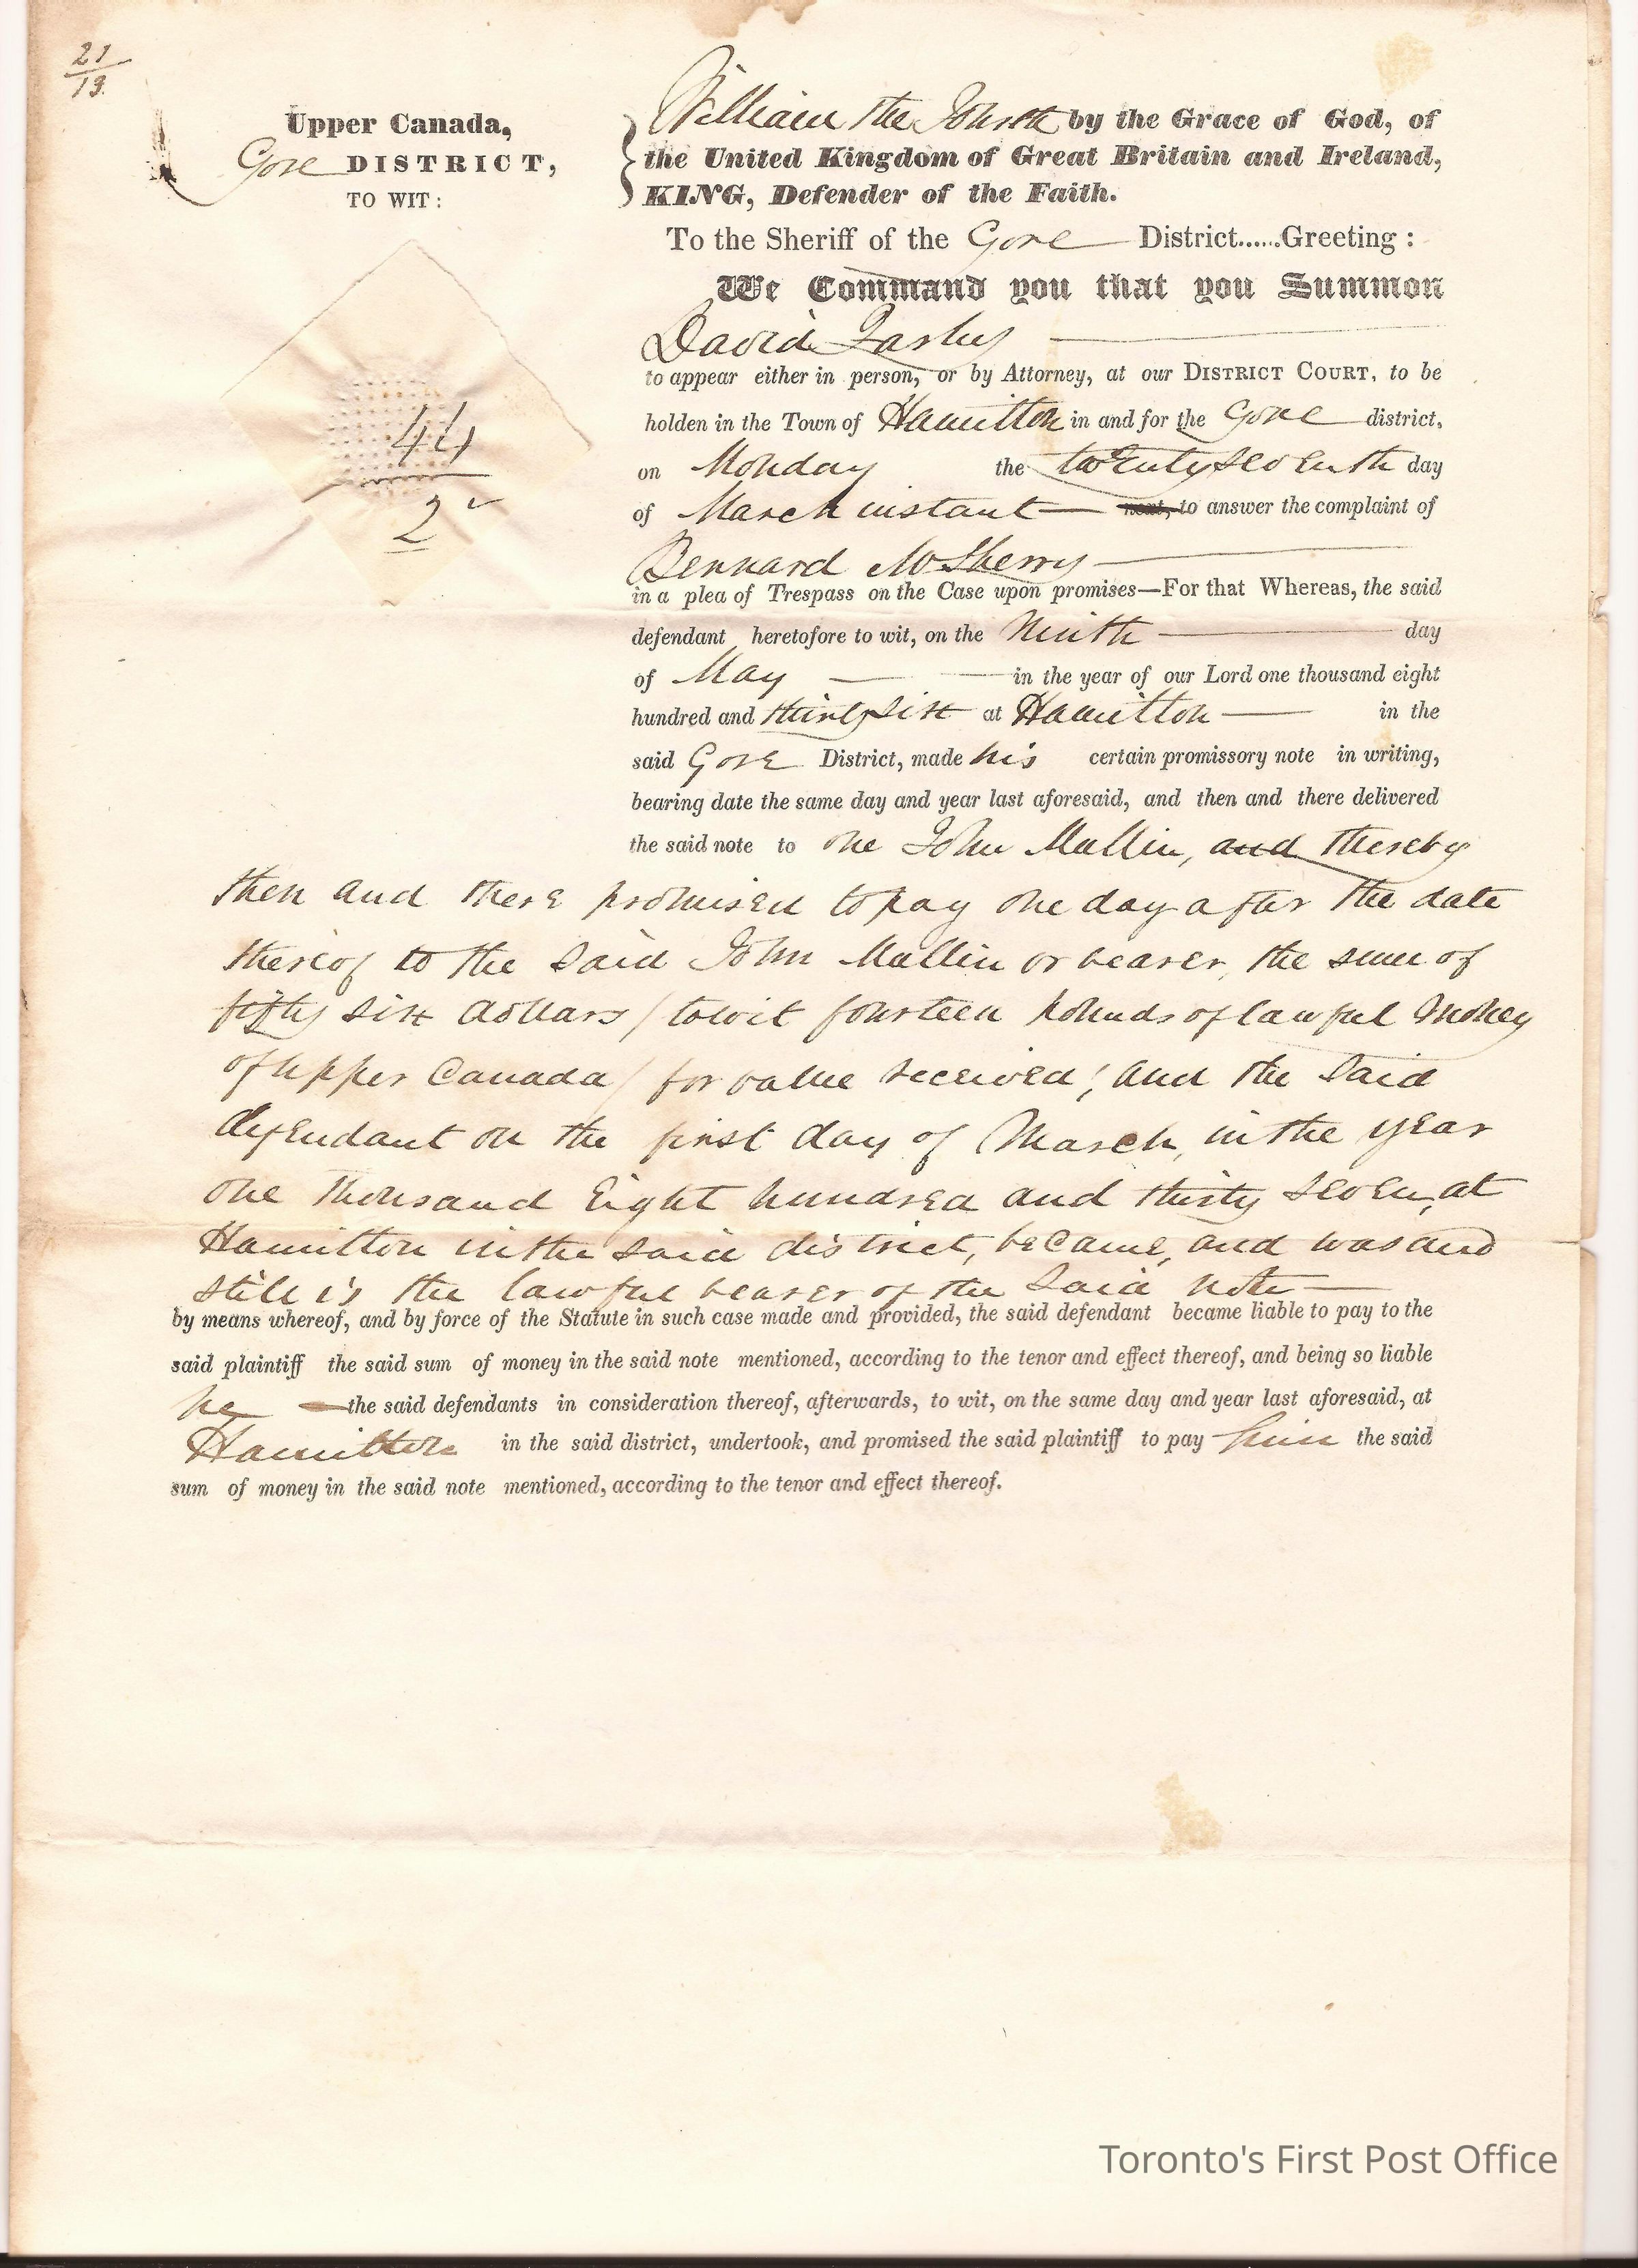 21
19
Upper Canada,
Gore DISTRICT,
TO WIT:
44
2
William the Fourth by the Grace of God, of
the United Kingdom of Great Britain and Ireland,
KING, Defender of the Faith.
To the Sheriff of the Gore District......Greeting:
We Command you that you Summon
David
to appear either in person, or by Attorney, at our DISTRICT COURT, to be
holden in the Town of Hamilton in and for the Gore district,
on Monday the twenty seventh day
of March instant next, to answer the complaint of
Bernard McSherry
in a plea of Trespass on the Case upon promises—For that Whereas, the said
defendant heretofore to wit, on the Ninth day
of May in the year of our Lord one thousand eight
hundred and thirty six at Hamilton in the
said Gore District, made his certain promissory note in writing,
bearing date the same day and year last aforesaid, and then and there delivered
the said note to one John Mullin, and thereby
then and there promised to pay one day after the date
thereof to the said John Mullin or bearer, the sum of
fifty six dollars / to wit fourteen pounds of lawful money
of Upper Canada / for value received; and the said
defendant on the first day of March, in the year
one thousand Eight hundred and thirty seven, at
Hamilton in the said district, became, and was and
still is the lawful bearer of the said note
by means whereof, and by force of the Statute in such case made and provided, the said defendant became liable to pay to the
said plaintiff the said sum of money in the said note mentioned, according to the tenor and effect thereof, and being so liable
he the said defendants in consideration thereof, afterwards, to wit, on the same day and year last aforesaid, at
Hamilton in the said district, undertook, and promised the said plaintiff to pay him the said
sum of money in the said note mentioned, according to the tenor and effect thereof.
Toronto's First Post Office